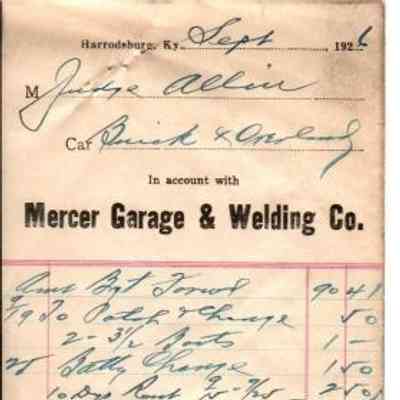 Harrodsburg, Ky. Sept 1926
M Judge Allin
Car Buick & Overland
In account with
Mercer Garage & Welding Co.
Amt Bgt Forwd 90 41
9/19 To Patch & Change 50
2 - 3 1/2 Boots 1 -
25 Batty Charge 1 50
10 Dys Rent 9/15 - 9/25 - 2 50